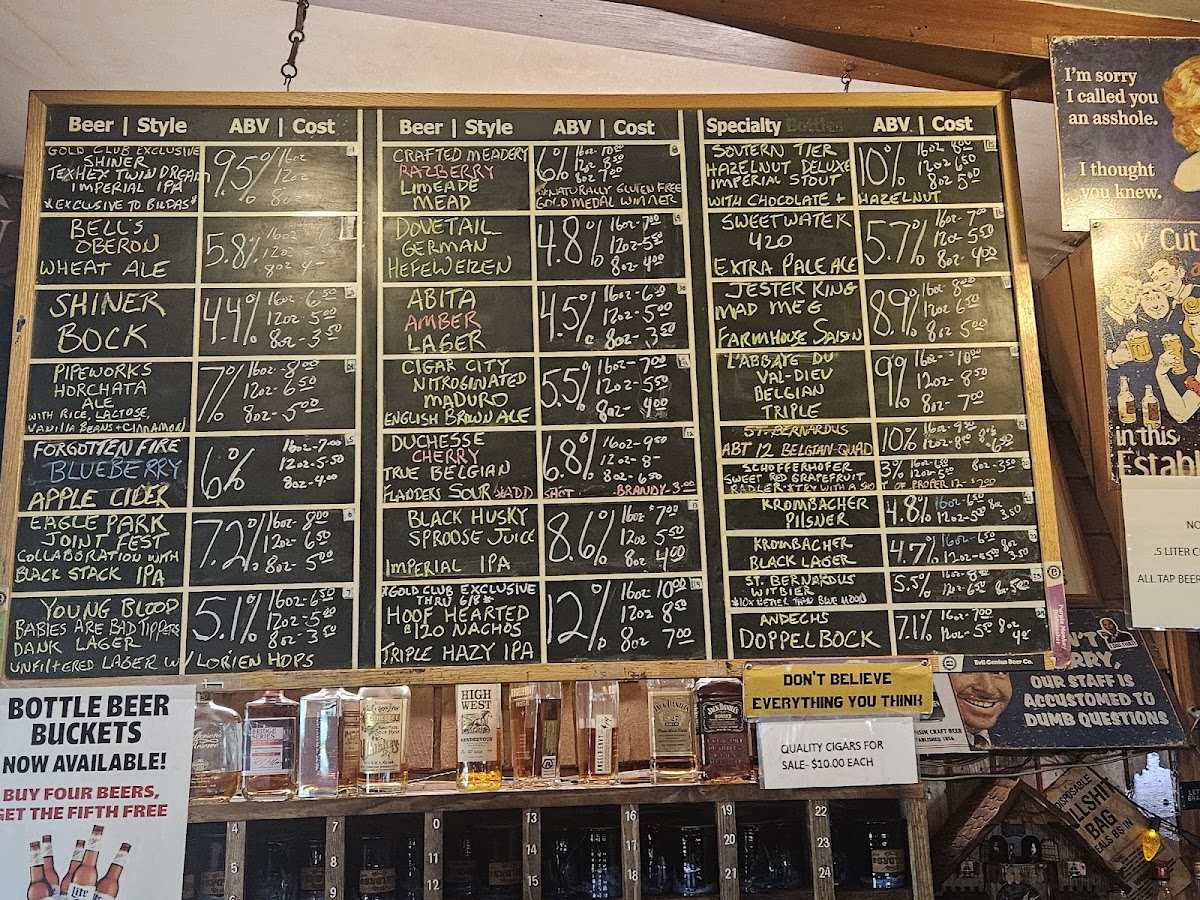 Beer | Style ABV | Cost
GOLD CLUB EXCLUSIVE
SHINER
TEXHEX TWIN DREAM
IMPERIAL IPA
*EXCLUSIVE TO BILDAS*
9.5% 16oz
12oz
8oz
BELL'S
OBERON
WHEAT ALE
5.8% 16oz
12oz
8oz 4-
SHINER
BOCK
4.4% 16oz - 6.50
12oz - 5.00
8oz - 3.50
PIPEWORKS
HORCHATA
ALE
WITH RICE, LACTOSE,
VANILLA BEANS + CINNAMON
7% 16oz - 8.00
12oz - 6.50
8oz - 5.00
FORGOTTEN FIRE
BLUEBERRY
APPLE CIDER
6% 16oz - 7.00
12oz - 5.50
8oz - 4.00
EAGLE PARK
JOINT FEST
COLLABORATION WITH
BLACK STACK IPA
7.2% 16oz - 8.00
12oz - 6.50
8oz - 5.00
YOUNG BLOOD
BABIES ARE BAD TIPPERS
DANK LAGER
UNFILTERED LAGER W/ LORIEN HOPS
5.1% 16oz - 6.50
12oz - 5.00
8oz - 3.50
Beer | Style ABV | Cost
CRAFTED MEADERY
RAZBERRY
LIMEADE
MEAD
6% 16oz 10.00
12oz 8.50
8oz 7.00
*NATURALLY GLUTEN FREE
GOLD MEDAL WINNER
DOVETAIL
GERMAN
HEFEWEIZEN
4.8% 16oz - 7.00
12oz - 5.50
8oz - 4.00
ABITA
AMBER
LAGER
4.5% 16oz - 6.50
12oz - 5.00
8oz - 3.50
CIGAR CITY
NITROGINATED
MADURO
ENGLISH BROWN ALE
5.5% 16oz - 7.00
12oz - 5.50
8oz - 4.00
DUCHESSE
CHERRY
TRUE BELGIAN
FLANDEN SOUR *ADD SHOT BRANDY - 3.00
6.8% 16oz - 9.50
12oz - 8-
8oz - 6.50
BLACK HUSKY
SPROOSE JUICE
IMPERIAL IPA
8.6% 16oz $7.00
12oz 5.50
8oz 4.00
*GOLD CLUB EXCLUSIVE
THRU 6/8*
HOOF HEARTED
$120 NACHOS
TRIPLE HAZY IPA
12% 16oz 10.00
12oz 8.50
8oz 7.00
Specialty Bottles ABV | Cost
SOUTERN TIER
HAZELNUT DELUXE
IMPERIAL STOUT
WITH CHOCOLATE + HAZELNUT
10% 16oz 8.00
12oz 6.50
8oz 5.00
SWEETWATER
420
EXTRA PALE ALE
5.7% 16oz - 7.00
12oz - 5.50
8oz - 4.00
JESTER KING
MAD MEG
FARMHOUSE SAISON
8.9% 16oz - 8.00
12oz 6.50
8oz 5.00
L'ABBAYE DU
VAL-DIEU
BELGIAN
TRIPLE
9% 16oz - 10.00
12oz - 8.50
8oz - 7.00
ST. BERNARDUS
ABT 12 BELGIAN QUAD
10% 16oz - 9.50
12oz - 8.00
SCHOFFERHOFER
SWEET RED GRAPEFRUIT
RADLER *TRY WITH A SHOT OF PROPER 12 - $2.00
3% 16oz - 6.50
12oz - 5.00 8oz - 3.50
KROMBACHER
PILSNER
4.8% 16oz - 6.50
12oz - 5.00 8oz 3.50
KROMBACHER
BLACK LAGER
4.7% 16oz - 6.50
12oz - 5.00 8oz 3.50
ST. BERNARDUS
WITBIER
*10X BETTER THAN BLUE MOON
5.5% 16oz - 8.00
ANDECHS
DOPPELBOCK
7.1% 16oz - 7.00
12oz - 5.50 8oz 4.00
Evil Genius Beer Co.
I'm sorry
I called you
an asshole.
I thought
you knew.
Low Cut
in this
Establ
NO
.5 LITER C
ALL TAP BEER
DON'T BELIEVE
EVERYTHING YOU THINK
QUALITY CIGARS FOR
SALE- $10.00 EACH
OUR STAFF IS
ACCUSTOMED TO
DUMB QUESTIONS
DISPOSABLE
BULLSHIT
BAG
BOTTLE BEER
BUCKETS
NOW AVAILABLE!
BUY FOUR BEERS,
GET THE FIFTH FREE
Lite
BRIDGE
SERIES
HIGH
WEST
4 7 0 13 16 19 22
5 8 11 14 17 20 23
6 9 12 15 18 21 24